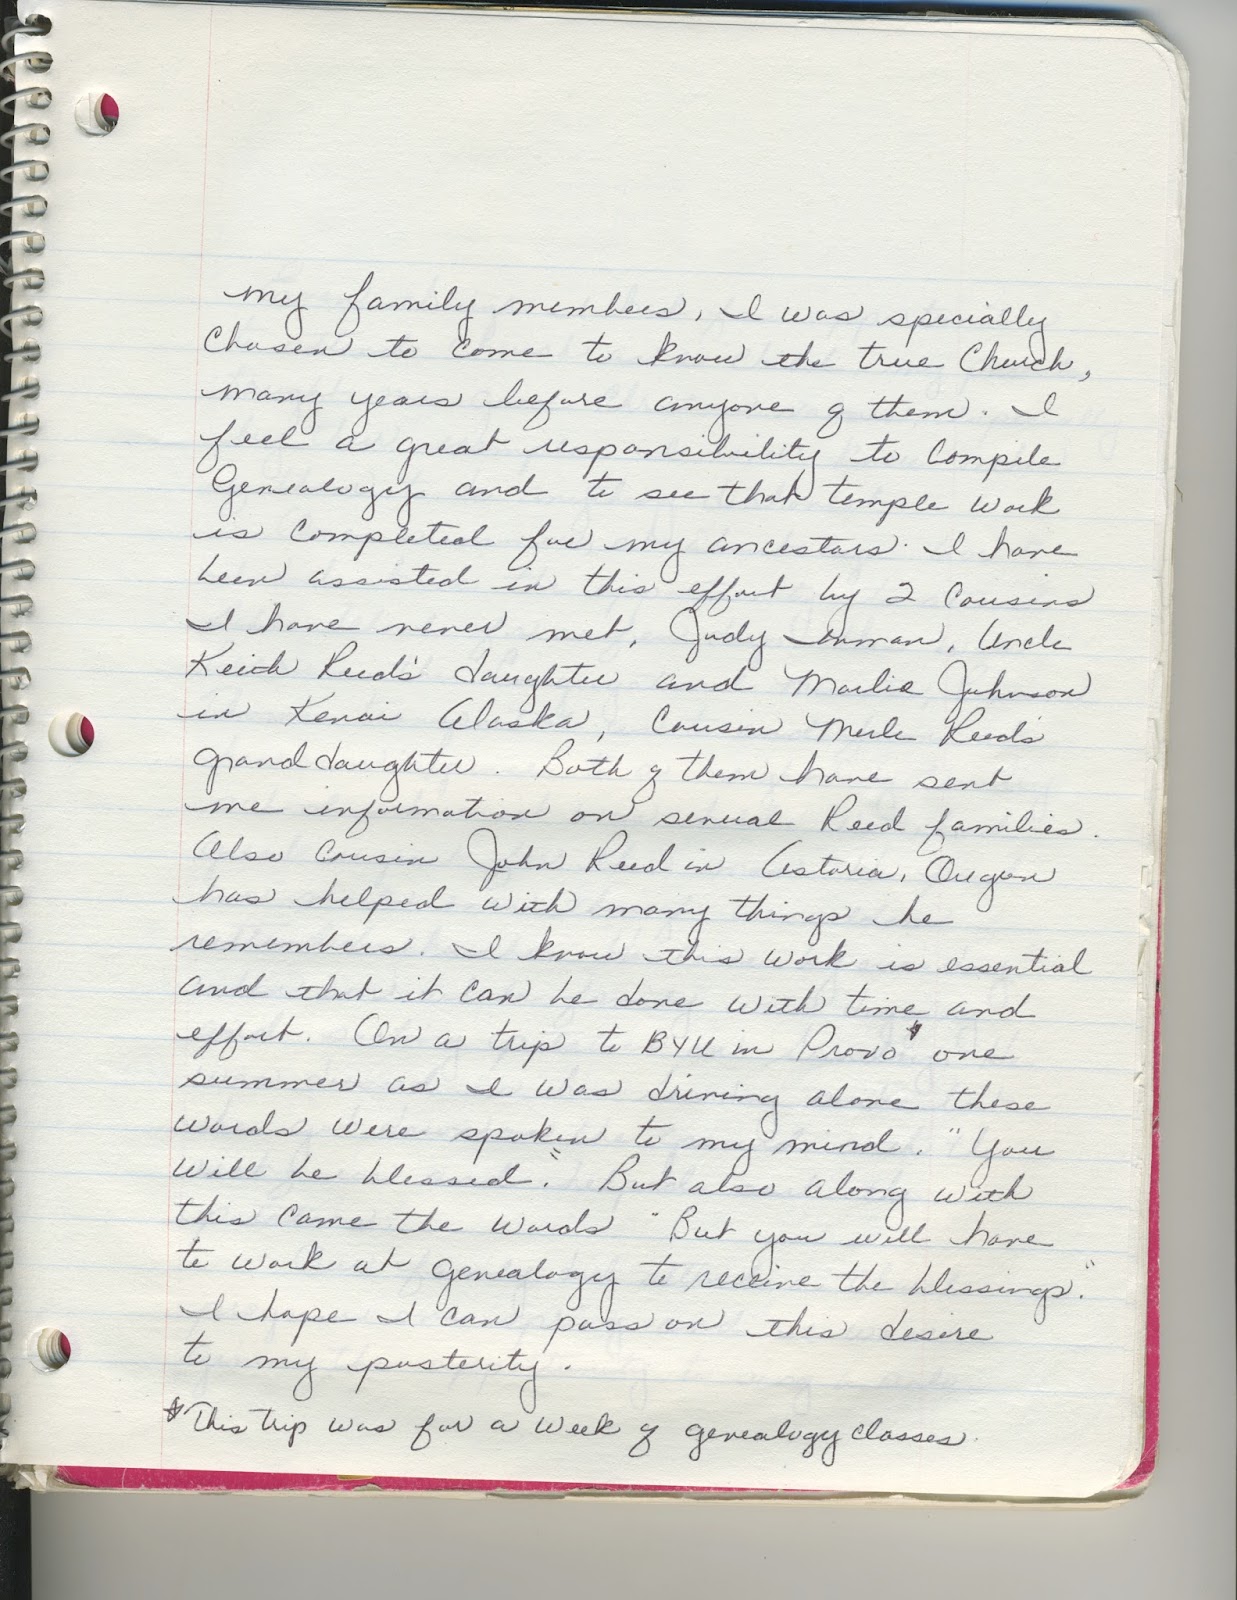 my family members, I was specially
chosen to come to know the true Church,
many years before anyone of them. I
feel a great responsibility to compile
Genealogy and to see that temple work
is completed for my ancestors. I have
been assisted in this effort by 2 cousins
I have never met, Judy Inman, Uncle
Keith Reed's daughter and Marlie Johnson
in Kenai Alaska, Cousin Merle Reed's
granddaughter. Both of them have sent
me information on several Reed families.
Also cousin John Reed in Astoria, Oregon
has helped with many things he
remembers. I know this work is essential
and that it can be done with time and
effort. On a trip to BYU in Provo* one
summer as I was driving alone these
words were spoken to my mind. "You
will be blessed." But also along with
this came the words "But you will have
to work at genealogy to receive the blessings."
I hope I can pass on this desire
to my posterity.
*This trip was for a week of genealogy classes.